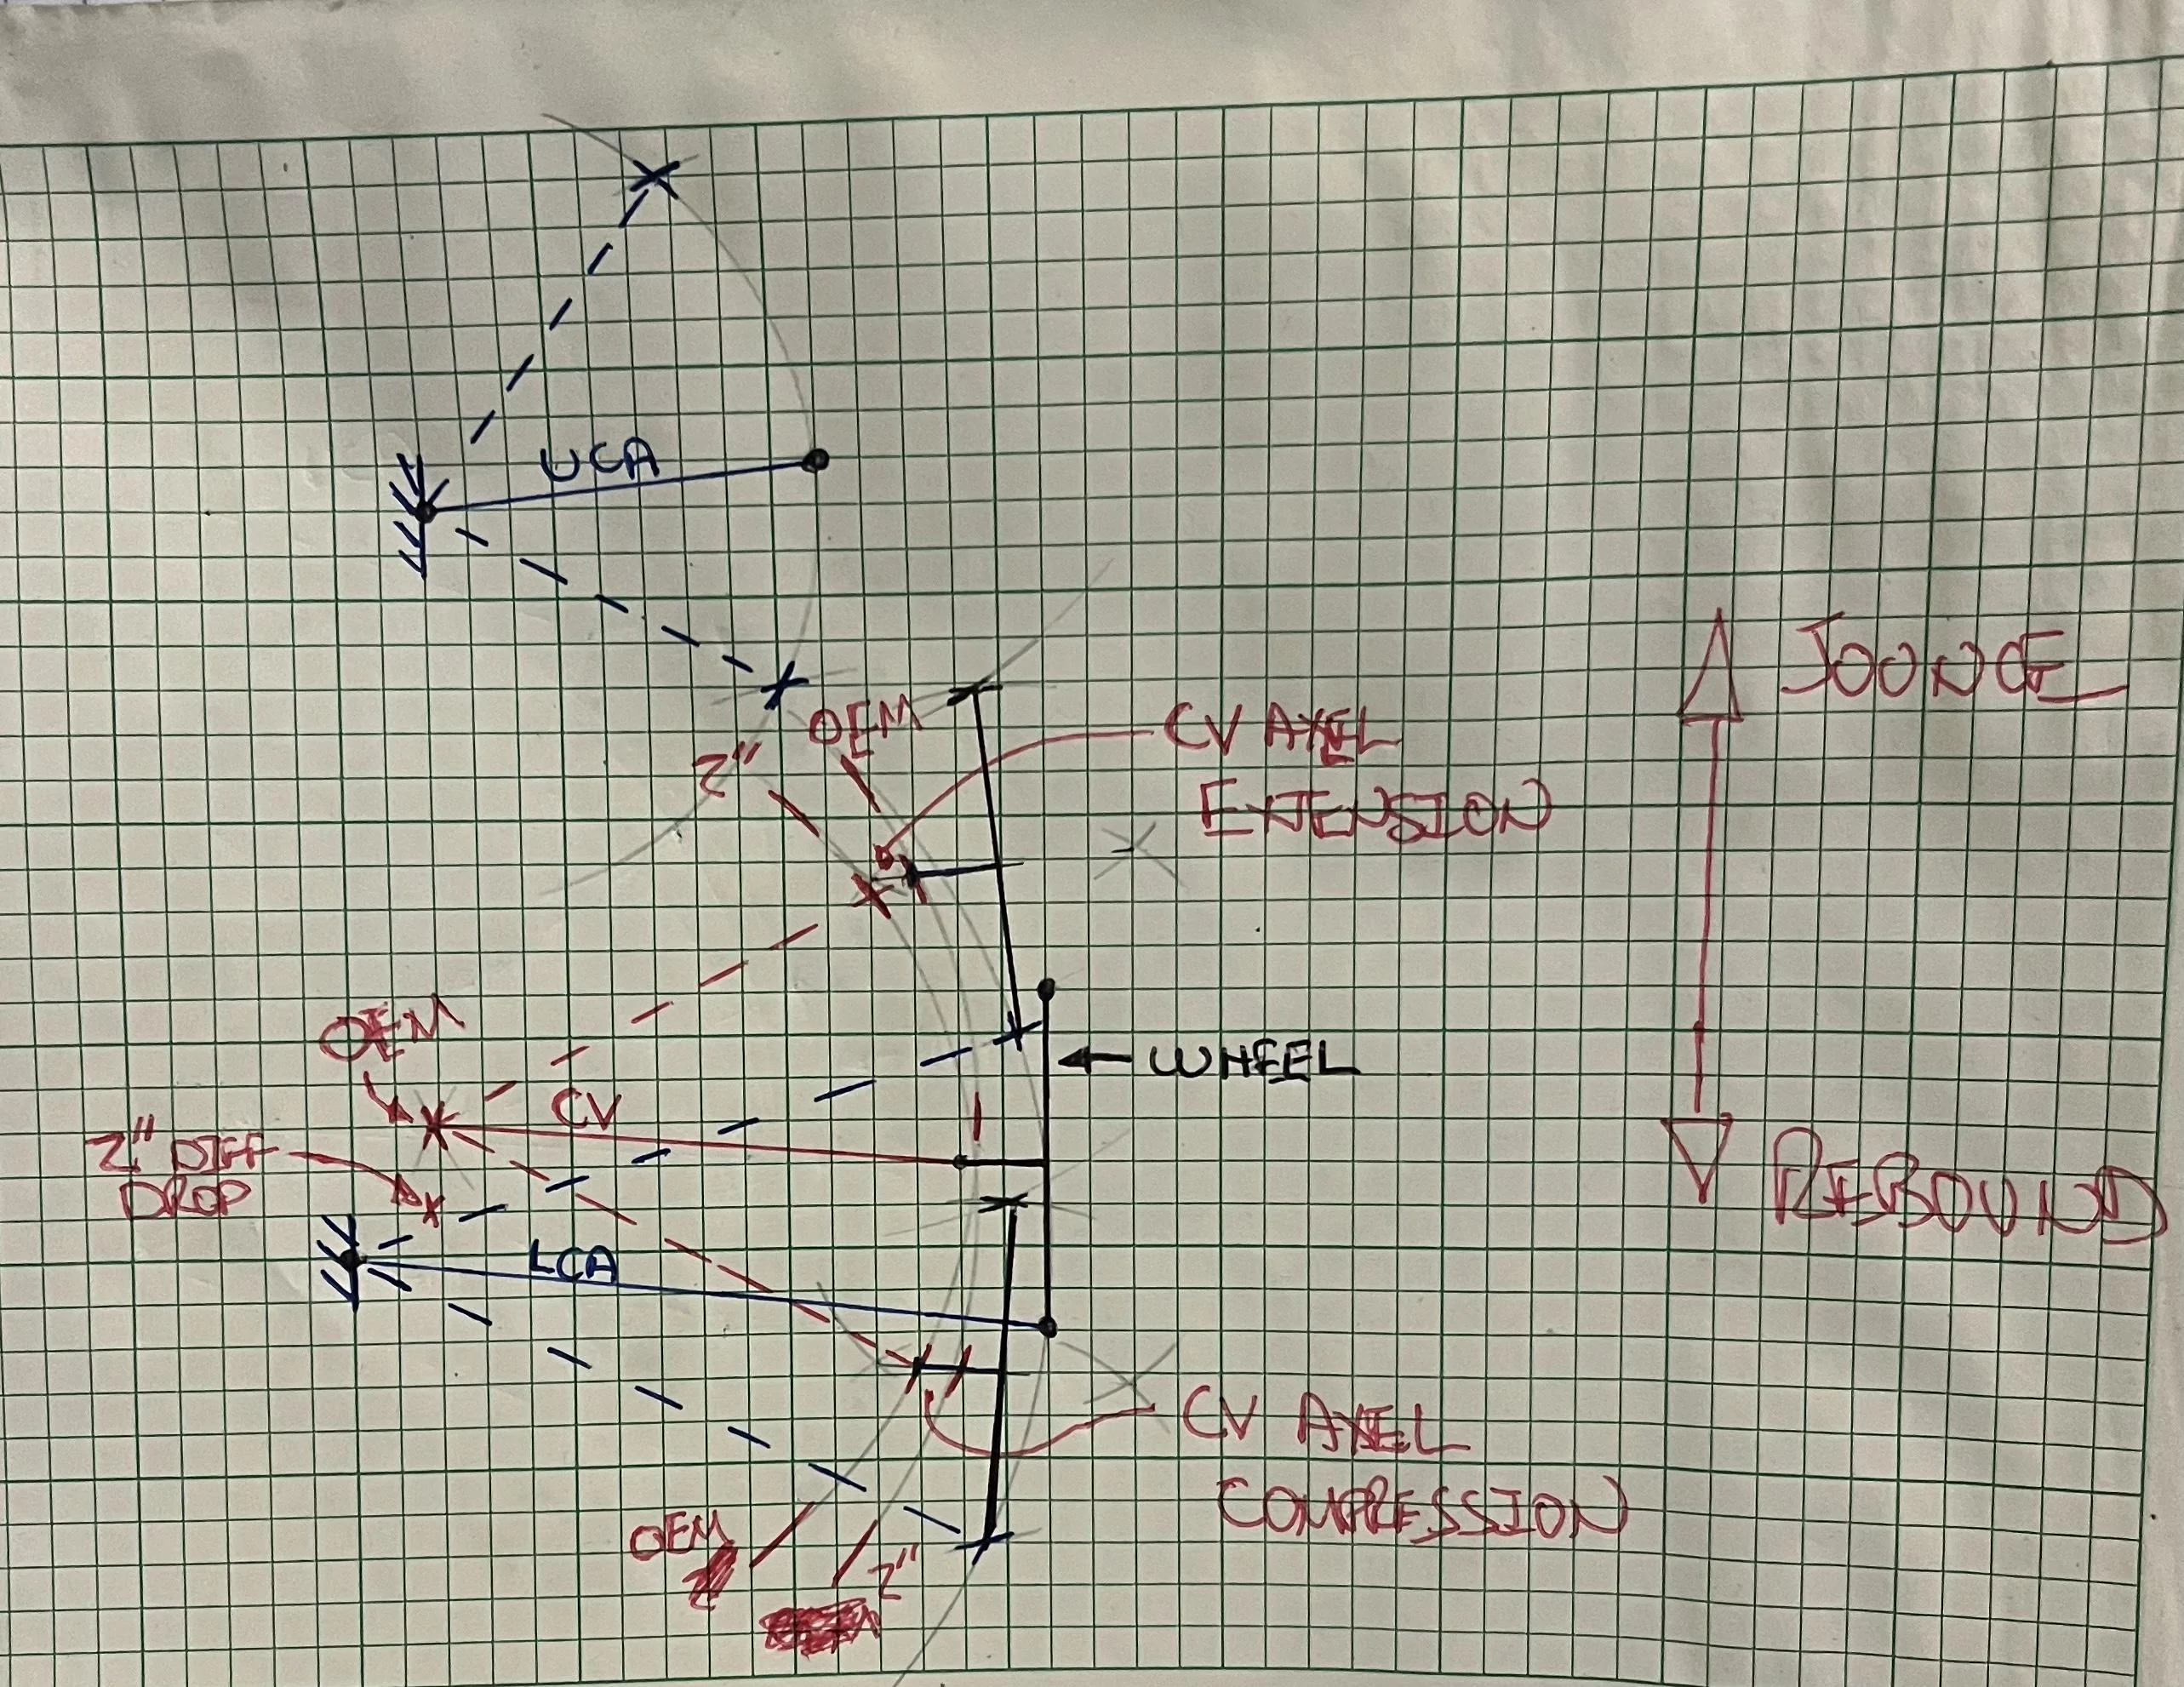 UCA
JOUNCE
OEM
2"
CV AXEL
EXTENSION
OEM
WHEEL
CV
2" DIFF
DROP
REBOUND
LCA
CV AXEL
COMPRESSION
OEM
2"